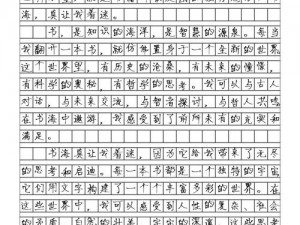 海，真让我着迷。
书，是知识的海洋，是智慧的源泉。每当
我翻开一本书，就仿佛置身于一个全新的世界。
这个世界里，有历史的沧桑，有未来的憧憬，
有科学的奥秘，有哲学的思考。我可以与古人
对话，与未来交流，与智者探讨，与哲人共鸣
在书海中遨游，我感受到了前所未有的充实和
满足。
书海真让我着迷，因为它给我带来了无尽
的思考和启迪。每一本书都是一个独特的宇宙，
它们用文字构建了一个个丰富多彩的世界。在
这些世界中，我可以感受到人性的复杂、社会